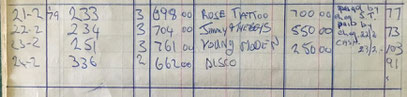 21-2 '79 233 3 698 00 ROSE TATTOO 700 00 paid by chq S.T. 77
22-2 234 3 704 00 JIMMY & THE BOYS 550 00 paid by chq 22/2 73
23-2 251 3 761 00 YOUNG MODE'N 250 00 cash 23/2 103
24-2 336 2 662 00 DISCO 91